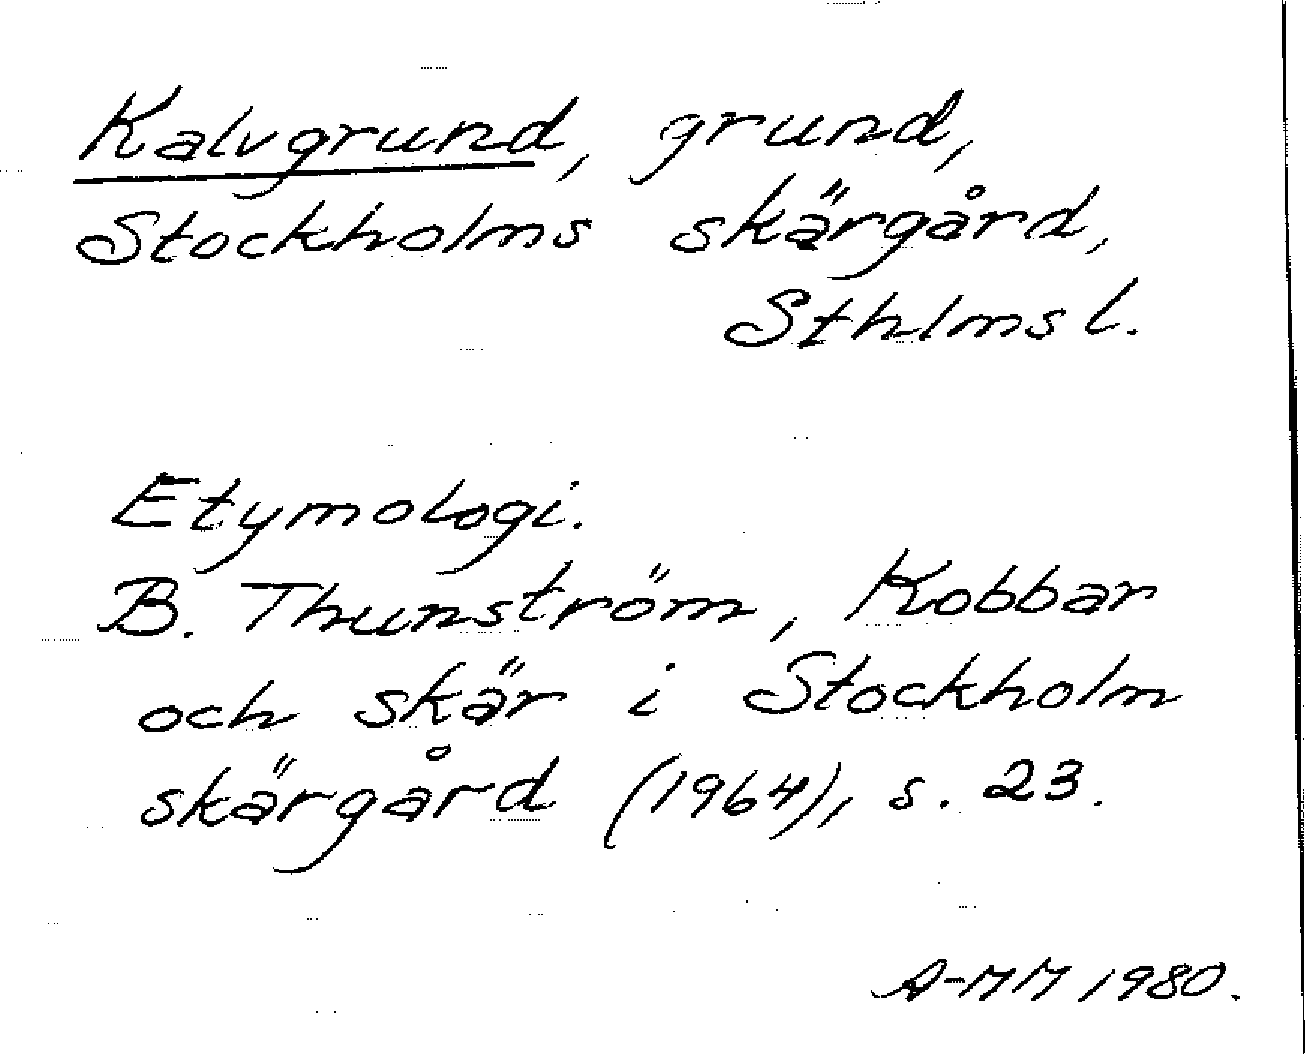 Kalvgrund, grund,
Stockholms skärgård,
Sthlms l.
Etymologi.
B. Thunström, Kobbar
och skär i Stockholm
skärgård (1964), s. 23.
A-MM 1980.